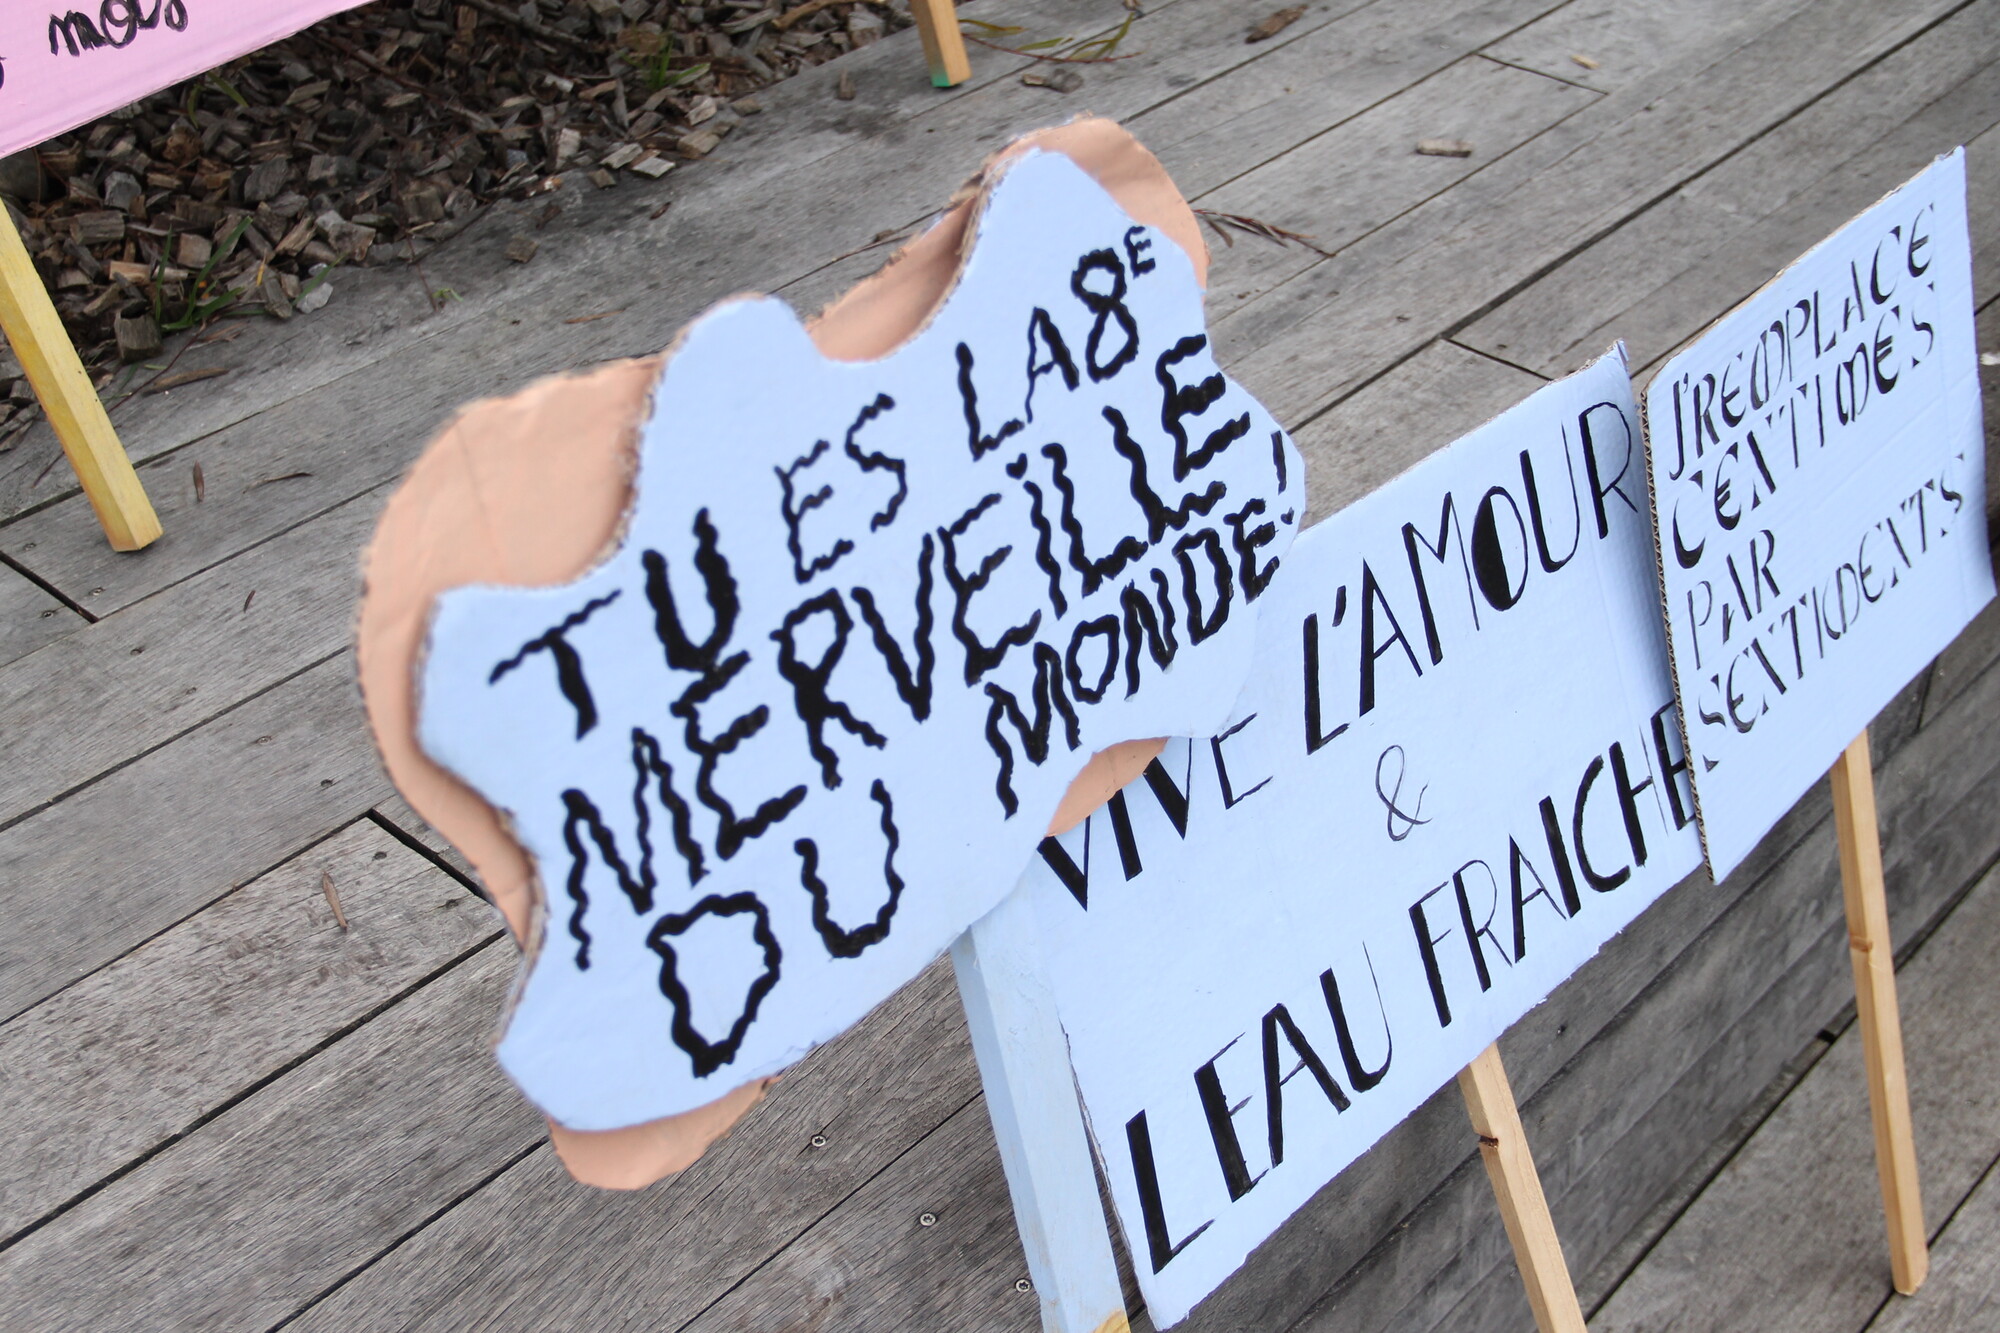 mois
TU ES LA 8E
MERVEILLE
DU MONDE!
VIVE L'AMOUR
&
L'EAU FRAICHE
J'REMPLACE
CENTIMES
PAR
SENTIMENTS